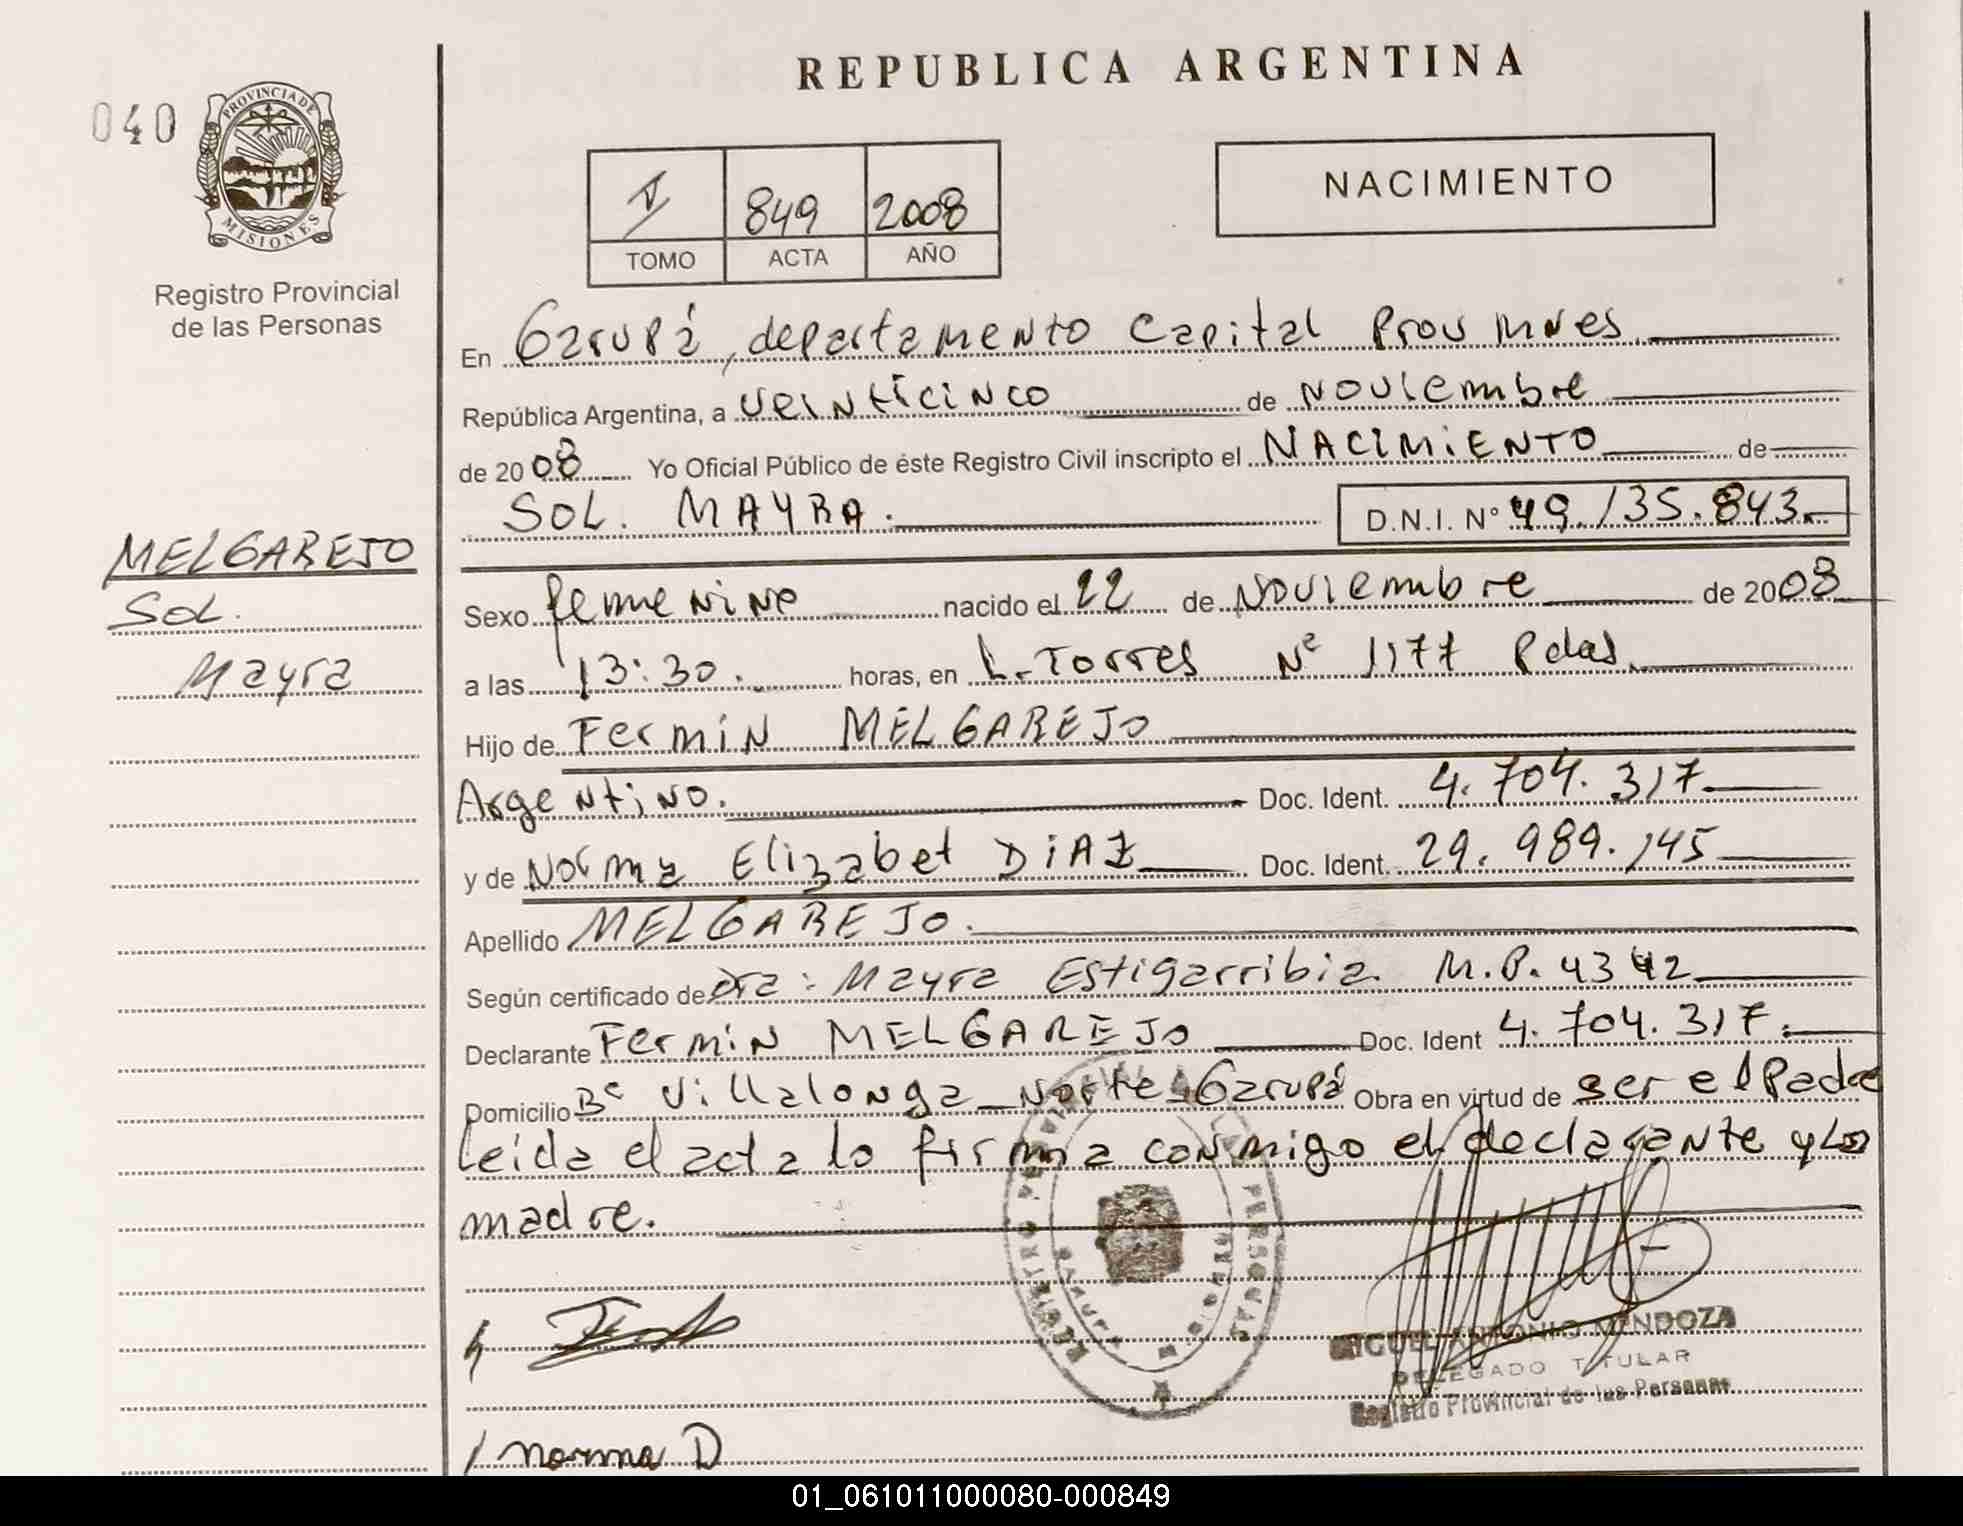 REPUBLICA ARGENTINA
040
PROVINCIA DE
MISIONES
Registro Provincial
de las Personas
V 849 2008
TOMO ACTA AÑO
NACIMIENTO
En Garupá, departamento Capital Prov Mnes
República Argentina, a veinticinco de noviembre
de 2008 Yo Oficial Público de éste Registro Civil inscripto el NACIMIENTO de
SOL. MAYRA. D.N.I. Nº 49.135.843.
MELGAREJO
Sol.
Mayra
Sexo femenino nacido el 22 de Noviembre de 2008
a las 13:30. horas, en L. Torres Nº 1177 Pdas.
Hijo de Fermin MELGAREJO
Argentino. Doc. Ident. 4.704.317.
y de Norma Elizabet DiAZ Doc. Ident. 29.989.145
Apellido MELGAREJO.
Según certificado de Dra: Mayra Estigarribia M.P. 4342
Declarante Fermin MELGAREJO Doc. Ident 4.704.317.
Domicilio Bº Villalonga Norte Garupá Obra en virtud de ser el Padre
Leida el acta lo firma conmigo el declarante y la
madre.
REGISTRO PROVINCIAL DE LAS PERSONAS
GARUPA MISIONES
MIGUEL ANTONIO MENDOZA
DELEGADO TITULAR
Registro Provincial de las Personas
norma D
01_061011000080-000849